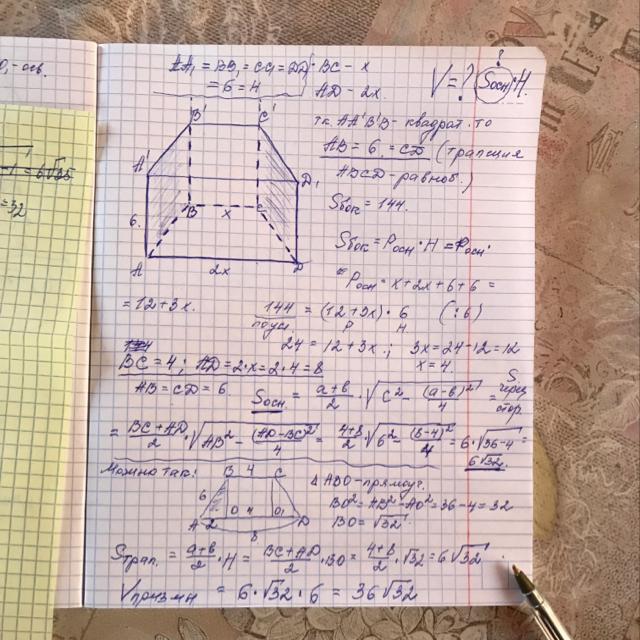 D₁ - осв.
= 6√35
= 32
AA₁ = BB₁ = CC₁ = DD₁
= 6 = H
BC - x
AD - 2x.
V = ? Sосн · H.
?
B'
C'
A'
D₁
B
x
C
6.
A
2x
D
т.к. AA'B'B - квадрат. то
AB = 6 = CD (трапеция
ABCD - равноб.)
Sбок = 144.
Sбок = Pосн · H = Pосн
Pосн = x + 2x + 6 + 6 =
= 12 + 3x.
144 = (12 + 3x) · 6 (:6)
P H
24 = 12 + 3x; 3x = 24 - 12 = 12
x = 4.
BC = 4; AD = 2·x = 2·4 = 8
AB = CD = 6.
Sосн = a+b/2 · √c² - (a-b)²/4 =
S через стор.
= BC+AD/2 · √AB² - (AD-BC)²/4 = 4+8/2 · √6² - (8-4)²/4 = 6·√36-4 =
6√32.
Можно так:
B 4 C
6
A 2 O 4 O₁ D
8
Δ ABO - прямоуг.
BO² = AB² - AO² = 36 - 4 = 32
BO = √32
Sтрап. = a+b/2 · H = BC+AD/2 · BO = 4+8/2 · √32 = 6√32
Vпризмы = 6·√32 · 6 = 36√32